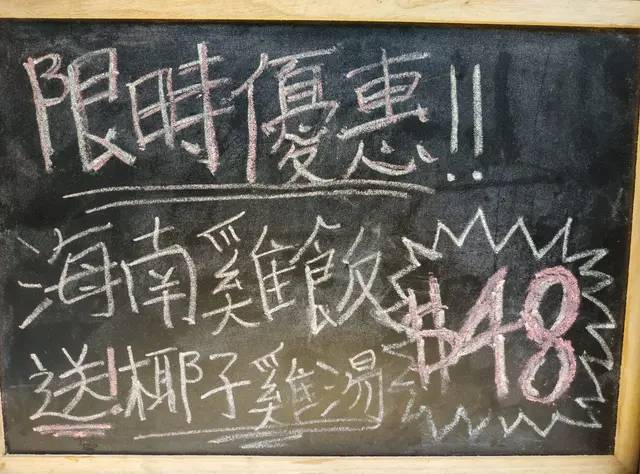 限時優惠!!
海南雞飯
$48
送!椰子雞湯